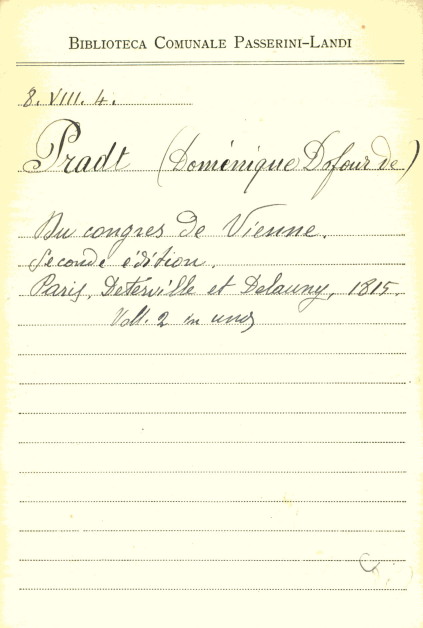 BIBLIOTECA COMUNALE PASSERINI-LANDI
8. VIII. 4.
Pradt (Doménique Dofour de)
Du congres de Vienne.
Seconde édition.
Paris, Deterville et Delauny, 1815.
Voll. 2 in uno